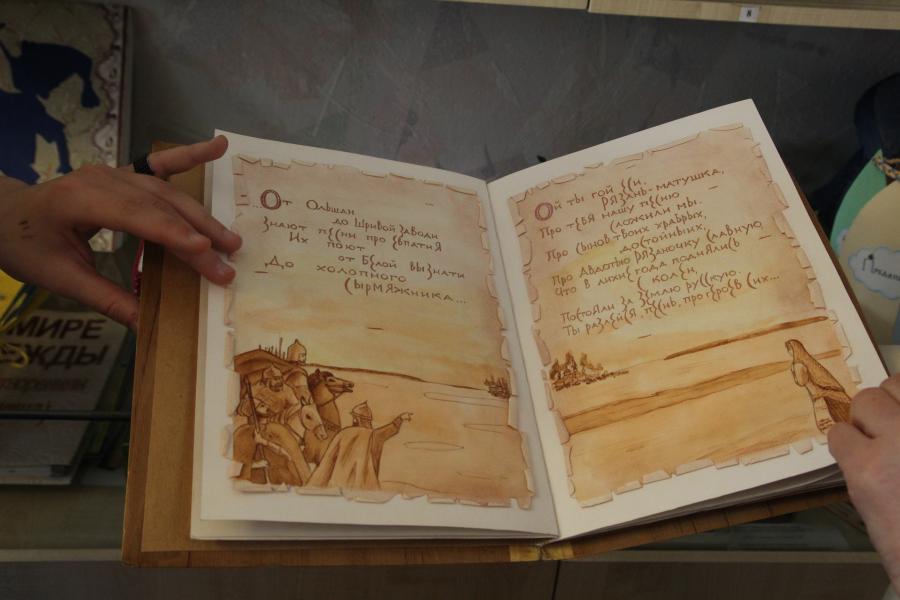 ...От Ольшан
до Щривой заводи
Знают песни про Евпатия
Их поют
от Белой вызнати
До холопного
Сырмяжника...
Ой ты гой еси,
Рязань-матушка,
Про тебя нашу песню
сложили мы.
Про сынов твоих храбрых,
достойных,
Про Авдотью Рязаночку славную,
Что в лихие года поднялись
с колен,
Постоял за землю русскую.
Ты разлейся, песнь, про героев сих...
МИРЕ
ЖДЫ
8